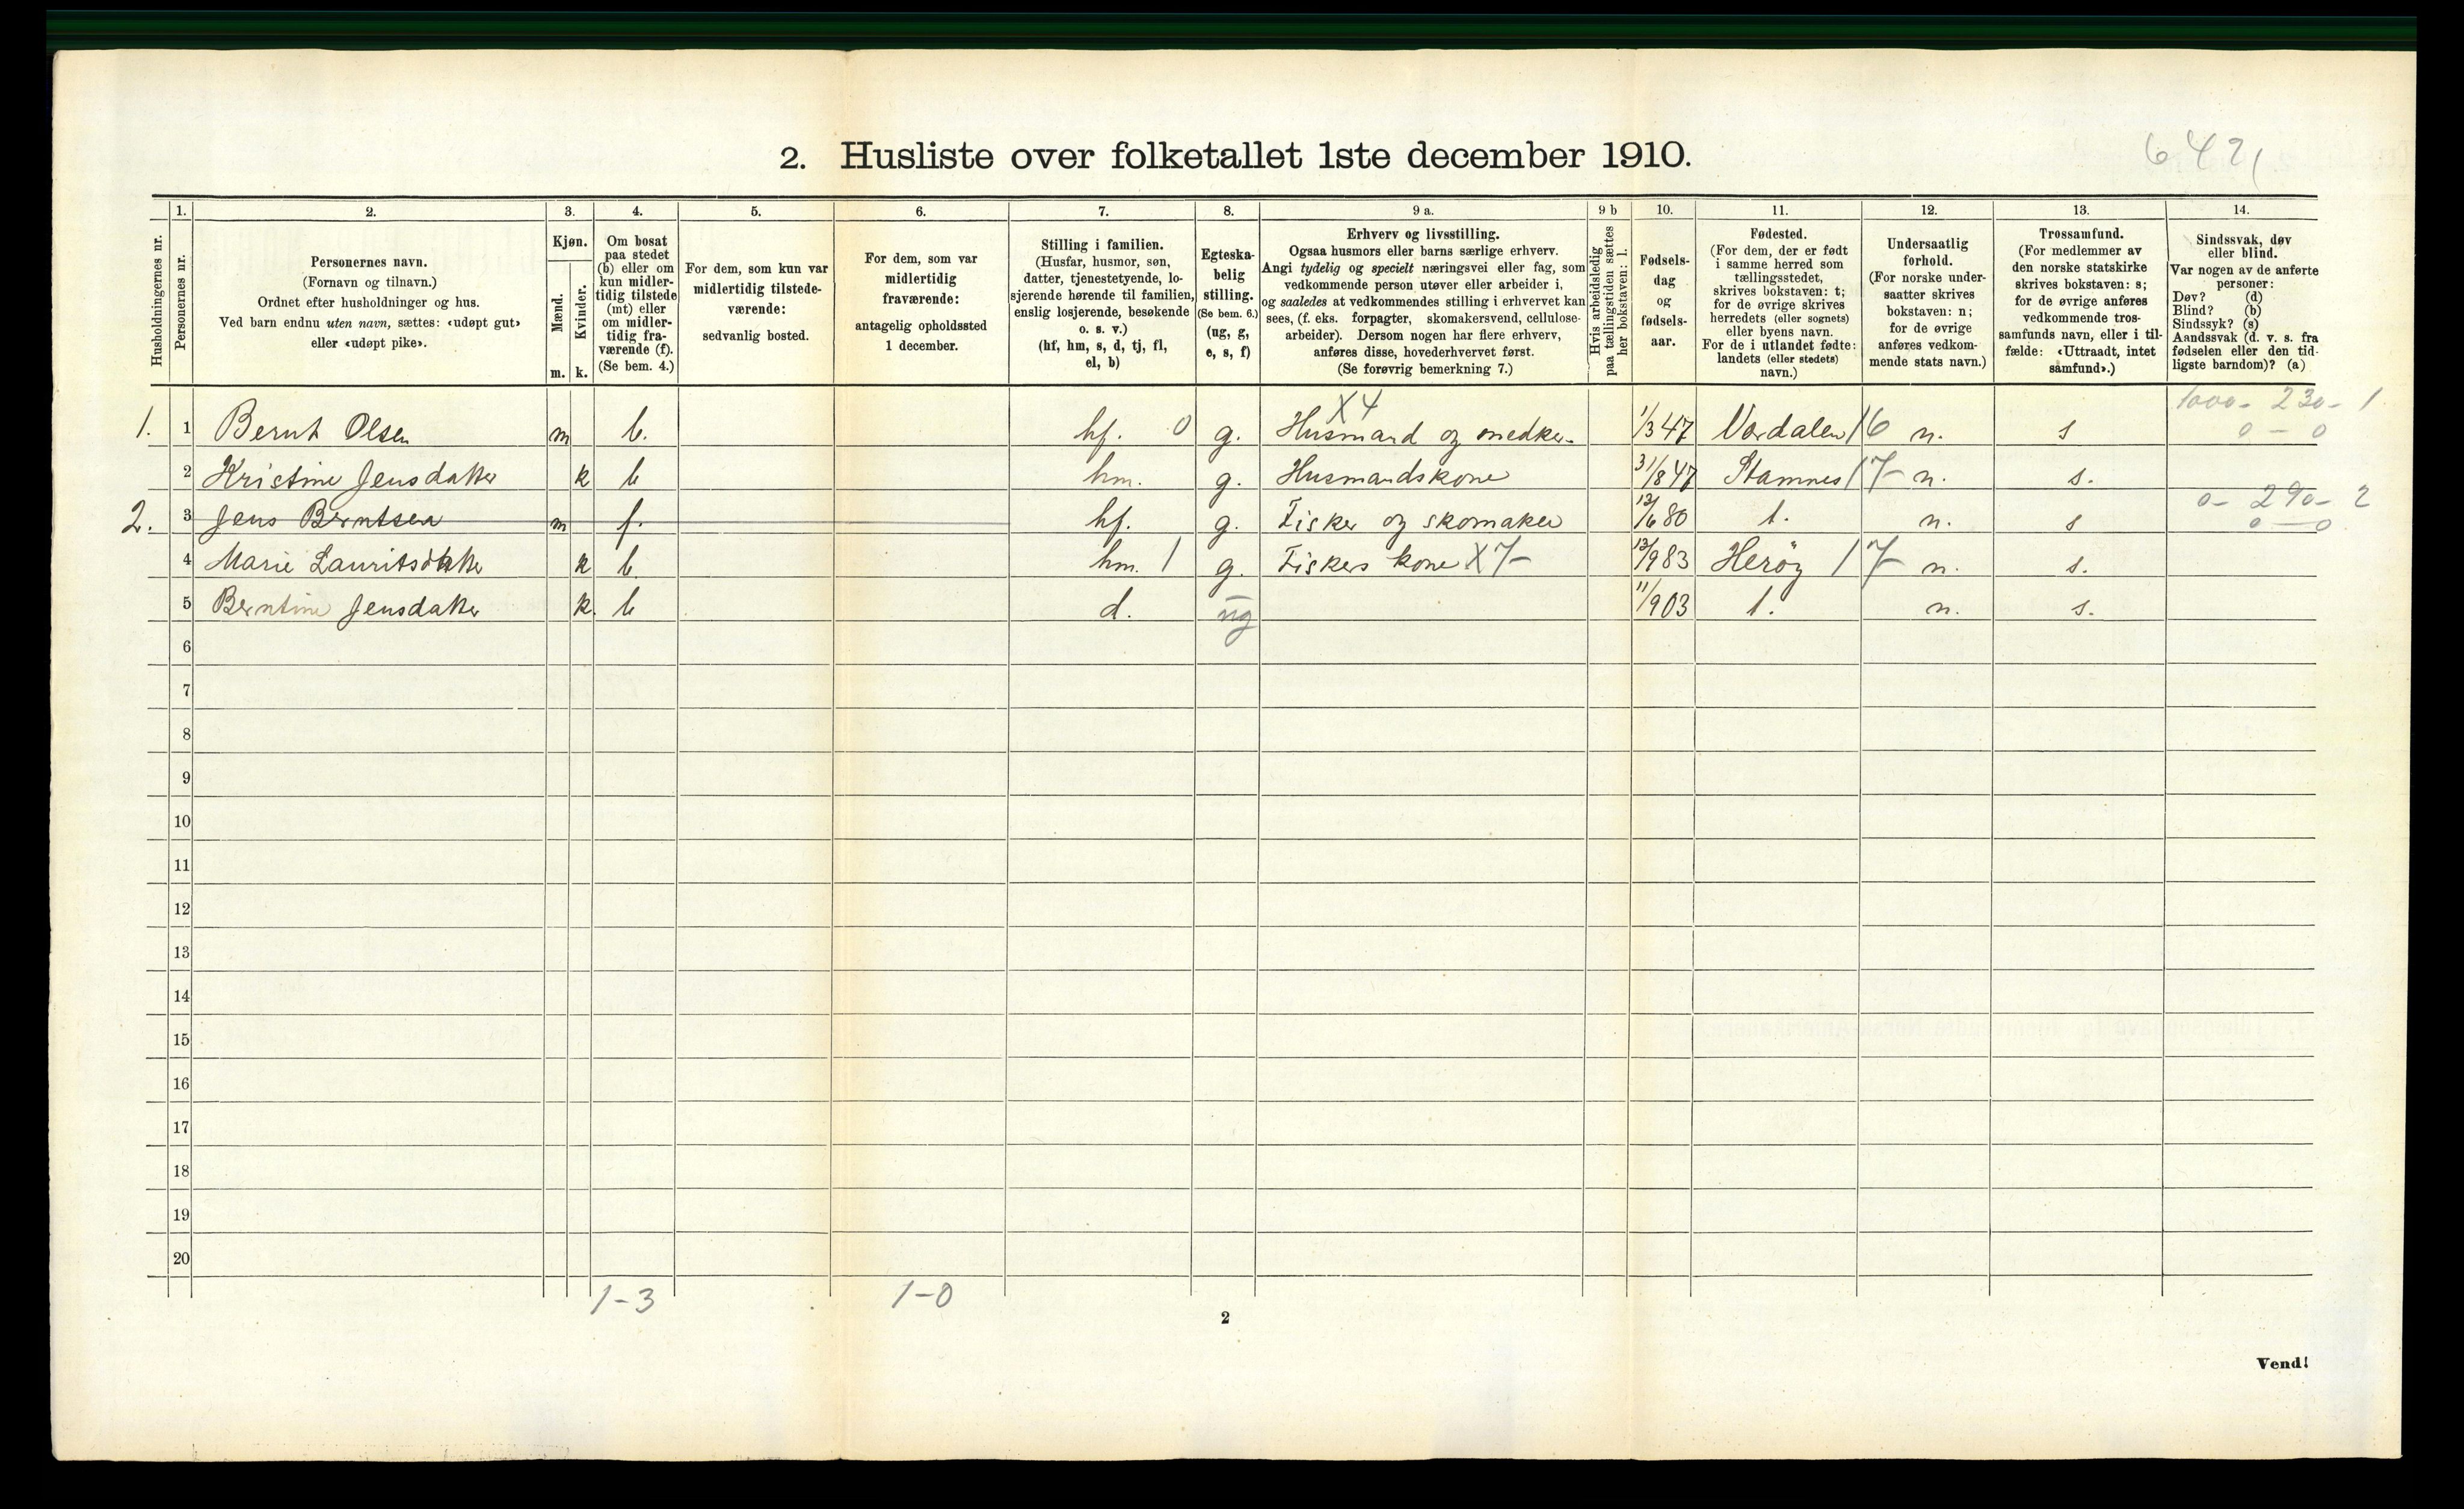 2. Husliste over folketallet 1ste december 1910.
6421
Husholdningernes nr.
1.
Personernes nr.
2.
Personernes navn.
(Fornavn og tilnavn.)
Ordnet efter husholdninger og hus.
Ved barn endnu uten navn, sættes: «udøpt gut»
eller «udøpt pike».
3.
Kjøn.
Mænd.
Kvinder.
m. k.
4.
Om bosat
paa stedet
(b) eller om
kun midler-
tidig tilstede
(mt) eller
om midler-
tidig fra-
værende (f).
(Se bem. 4.)
5.
For dem, som kun var
midlertidig tilstede-
værende:
sedvanlig bosted.
6.
For dem, som var
midlertidig
fraværende:
antagelig opholdssted
1 december.
7.
Stilling i familien.
(Husfar, husmor, søn,
datter, tjenestetyende, lo-
sjerende hørende til familien,
enslig losjerende, besøkende
o. s. v.)
(hf, hm, s, d, tj, fl,
el, b)
8.
Egteska-
belig
stilling.
(Se bem. 6.)
(ug, g,
e, s, f)
9 a.
Erhverv og livsstilling.
Ogsaa husmors eller barns særlige erhverv.
Angi tydelig og specielt næringsvei eller fag, som
vedkommende person utøver eller arbeider i,
og saaledes at vedkommendes stilling i erhvervet kan
sees, (f. eks. forpagter, skomakersvend, cellulose-
arbeider). Dersom nogen har flere erhverv,
anføres disse, hovederhvervet først.
(Se forøvrig bemerkning 7.)
9 b
Hvis arbeidsledig
paa tællingstiden sættes
her bokstaven: l.
10.
Fødsels-
dag
og
fødsels-
aar.
11.
Fødested.
(For dem, der er født
i samme herred som
tællingsstedet,
skrives bokstaven: t;
for de øvrige skrives
herredets (eller sognets)
eller byens navn.
For de i utlandet fødte:
landets (eller stedets)
navn.)
12.
Undersaatlig
forhold.
(For norske under-
saatter skrives
bokstaven: n;
for de øvrige
anføres vedkom-
mende stats navn.)
13.
Trossamfund.
(For medlemmer av
den norske statskirke
skrives bokstaven: s;
for de øvrige anføres
vedkommende tros-
samfunds navn, eller i til-
fælde: «Uttraadt, intet
samfund».)
14.
Sindssvak, døv
eller blind.
Var nogen av de anførte
personer:
Døv? (d)
Blind? (b)
Sindssyk? (s)
Aandssvak (d. v. s. fra
fødselen eller den tid-
ligste barndom)? (a)
X4 1000- 230- 1
1. 1 Bernt Olsen m b. hf. 0 g. Husmand og 1/3 47 16 n. s 0 - 0
2 Kristine Jensdatter k b hm. g. Husmandskone 31/8 47 Stamnes 17- n. s.
0- 290- 2
2. 3 Jens Berntsen m f. hf. g. Fisker og skomaker 13/6 80 t. n. s 0 - 0
4 Marie k b hm. 1 g. Fiskers kone X7- 13/9 83 Herøy 17- n. s.
5 Berntine Jensdatter k. b d. ug 11/9 03 t. n. s.
6
7
8
9
10
11
12
13
14
15
16
17
18
19
20
1-3 1-0
2
Vend!